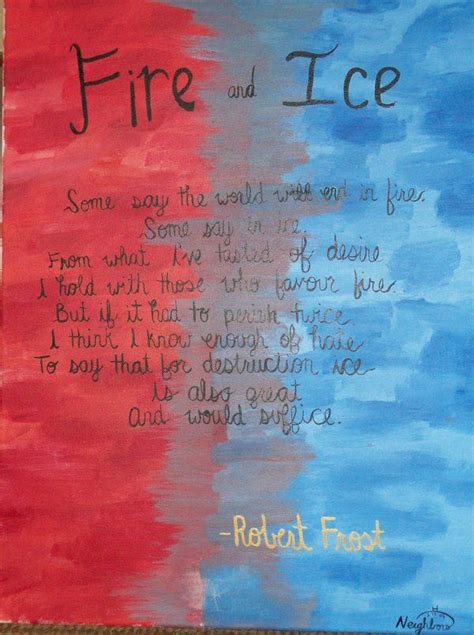 Fire and Ice
Some say the world will end in fire.
Some say in ice.
From what I've tasted of desire
I hold with those who favour fire.
But if it had to perish twice.
I think I know enough of hate
To say that for destruction ice
Is also great
And would suffice.
-Robert Frost
Neighbors